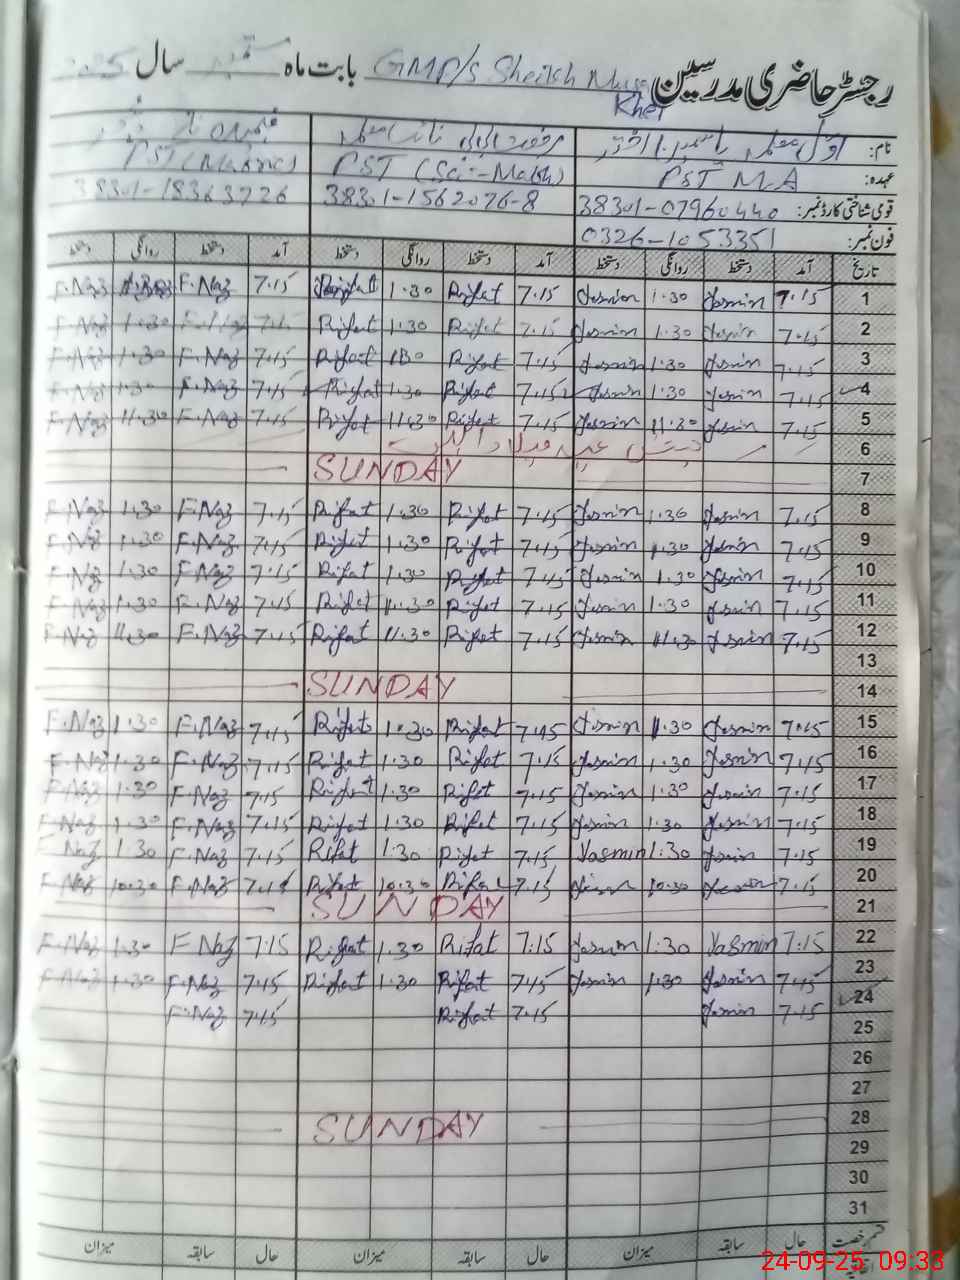 رجسٹر حاضری مدرسین GMP/S Sheikh Musa Khel بابت ماہ ستمبر سال
نام: اوّل معلمہ یاسمین اختر
عہدہ: PST M.A PST (Sci-Math) PST (Matric)
قومی شناختی کارڈ نمبر: 38301-0796044-0 38301-1562076-8 38301-1836372-6
فون نمبر: 0326-1053351
تاریخ آمد دستخط روانگی دستخط آمد دستخط روانگی دستخط آمد دستخط روانگی دستخط
1 7.15 Yasmin 1.30 Yasmin 7.15 Rifat 1.30 Rifat 7.15 F.Naz F.Naz
2 7.15 Yasmin 1.30 Yasmin 7.15 Rifat 1.30 Rifat 7.15 F.Naz 1.30 F.Naz
3 7.15 Yasmin 1.30 Yasmin 7.15 Rifat 1.30 Rifat 7.15 F.Naz 1.30 F.Naz
4 7.15 Yasmin 1.30 Yasmin 7.15 Rifat 1.30 Rifat 7.15 F.Naz 1.30 F.Naz
5 7.15 Yasmin 11.30 Yasmin 7.15 Rifat 11.30 Rifat 7.15 F.Naz 11.30 F.Naz
6 عید میلاد النبی
7 SUNDAY
8 7.15 Yasmin 1.30 Yasmin 7.15 Rifat 1.30 Rifat 7.15 F.Naz 1.30 F.Naz
9 7.15 Yasmin 1.30 Yasmin 7.15 Rifat 1.30 Rifat 7.15 F.Naz 1.30 F.Naz
10 7.15 Yasmin 1.30 Yasmin 7.15 Rifat 1.30 Rifat 7.15 F.Naz 1.30 F.Naz
11 7.15 Yasmin 1.30 Yasmin 7.15 Rifat 1.30 Rifat 7.15 F.Naz 1.30 F.Naz
12 7.15 Yasmin 11.30 Yasmin 7.15 Rifat 11.30 Rifat 7.15 F.Naz 11.30 F.Naz
13
14 SUNDAY
15 7.15 Yasmin 1.30 Yasmin 7.15 Rifat 1.30 Rifat 7.15 F.Naz 1.30 F.Naz
16 7.15 Yasmin 1.30 Yasmin 7.15 Rifat 1.30 Rifat 7.15 F.Naz 1.30 F.Naz
17 7.15 Yasmin 1.30 Yasmin 7.15 Rifat 1.30 Rifat 7.15 F.Naz 1.30 F.Naz
18 7.15 Yasmin 1.30 Yasmin 7.15 Rifat 1.30 Rifat 7.15 F.Naz 1.30 F.Naz
19 7.15 Yasmin 1.30 Yasmin 7.15 Rifat 1.30 Rifat 7.15 F.Naz 1.30 F.Naz
20 7.15 Yasmin 10.30 Yasmin 7.15 Rifat 10.30 Rifat 7.15 F.Naz 10.30 F.Naz
21 SUNDAY
22 7.15 Yasmin 1.30 Yasmin 7.15 Rifat 1.30 Rifat 7.15 F.Naz 1.30 F.Naz
23 7.15 Yasmin 1.30 Yasmin 7.15 Rifat 1.30 Rifat 7.15 F.Naz 1.30 F.Naz
24 7.15 Yasmin 7.15 Rifat 7.15 F.Naz
25
26
27
28 SUNDAY
29
30
31
قسم رخصت حال سابقہ میزان حال سابقہ میزان حال سابقہ میزان
24-09-25 09:33